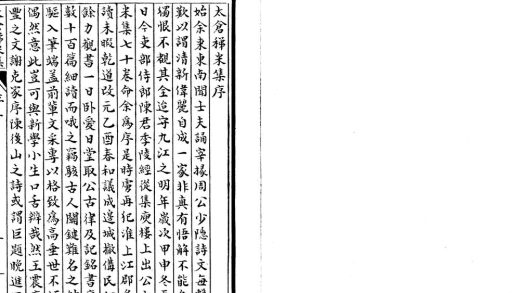 太倉稊米集序
始余東東南聞士夫誦宰掾周公少隱詩文每
歎以謂清新偉麗自成一家非真有悟解不能
獨恨不覩其全迨守九江之明年歲次甲申冬
日今吏部侍郎陳君季陵經從集庾樓上出公
米集七十卷命余為序是時虜再犯淮上江郡
讀未暇乾道改元乙酉春和議成邊城撤備民
餘力觀書一日卧愛日堂取公古律及記銘書
數十百篇細讀而哦之竊駭古人關鍵難名之
驅入筆端蓋前輩文采專以格致為高垂世不
偶然意此豈可與新學小生口舌辯哉然王震
豐之文謝克家序陳後山之詩或謂巨題晚進